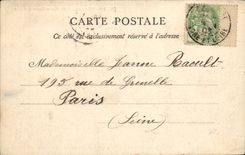 CARTE POSTALE
Ce côté est exclusivement réservé à l'adresse
Mademoiselle Jeanne Raoult
195 rue de Grenelle
Paris
(Seine)